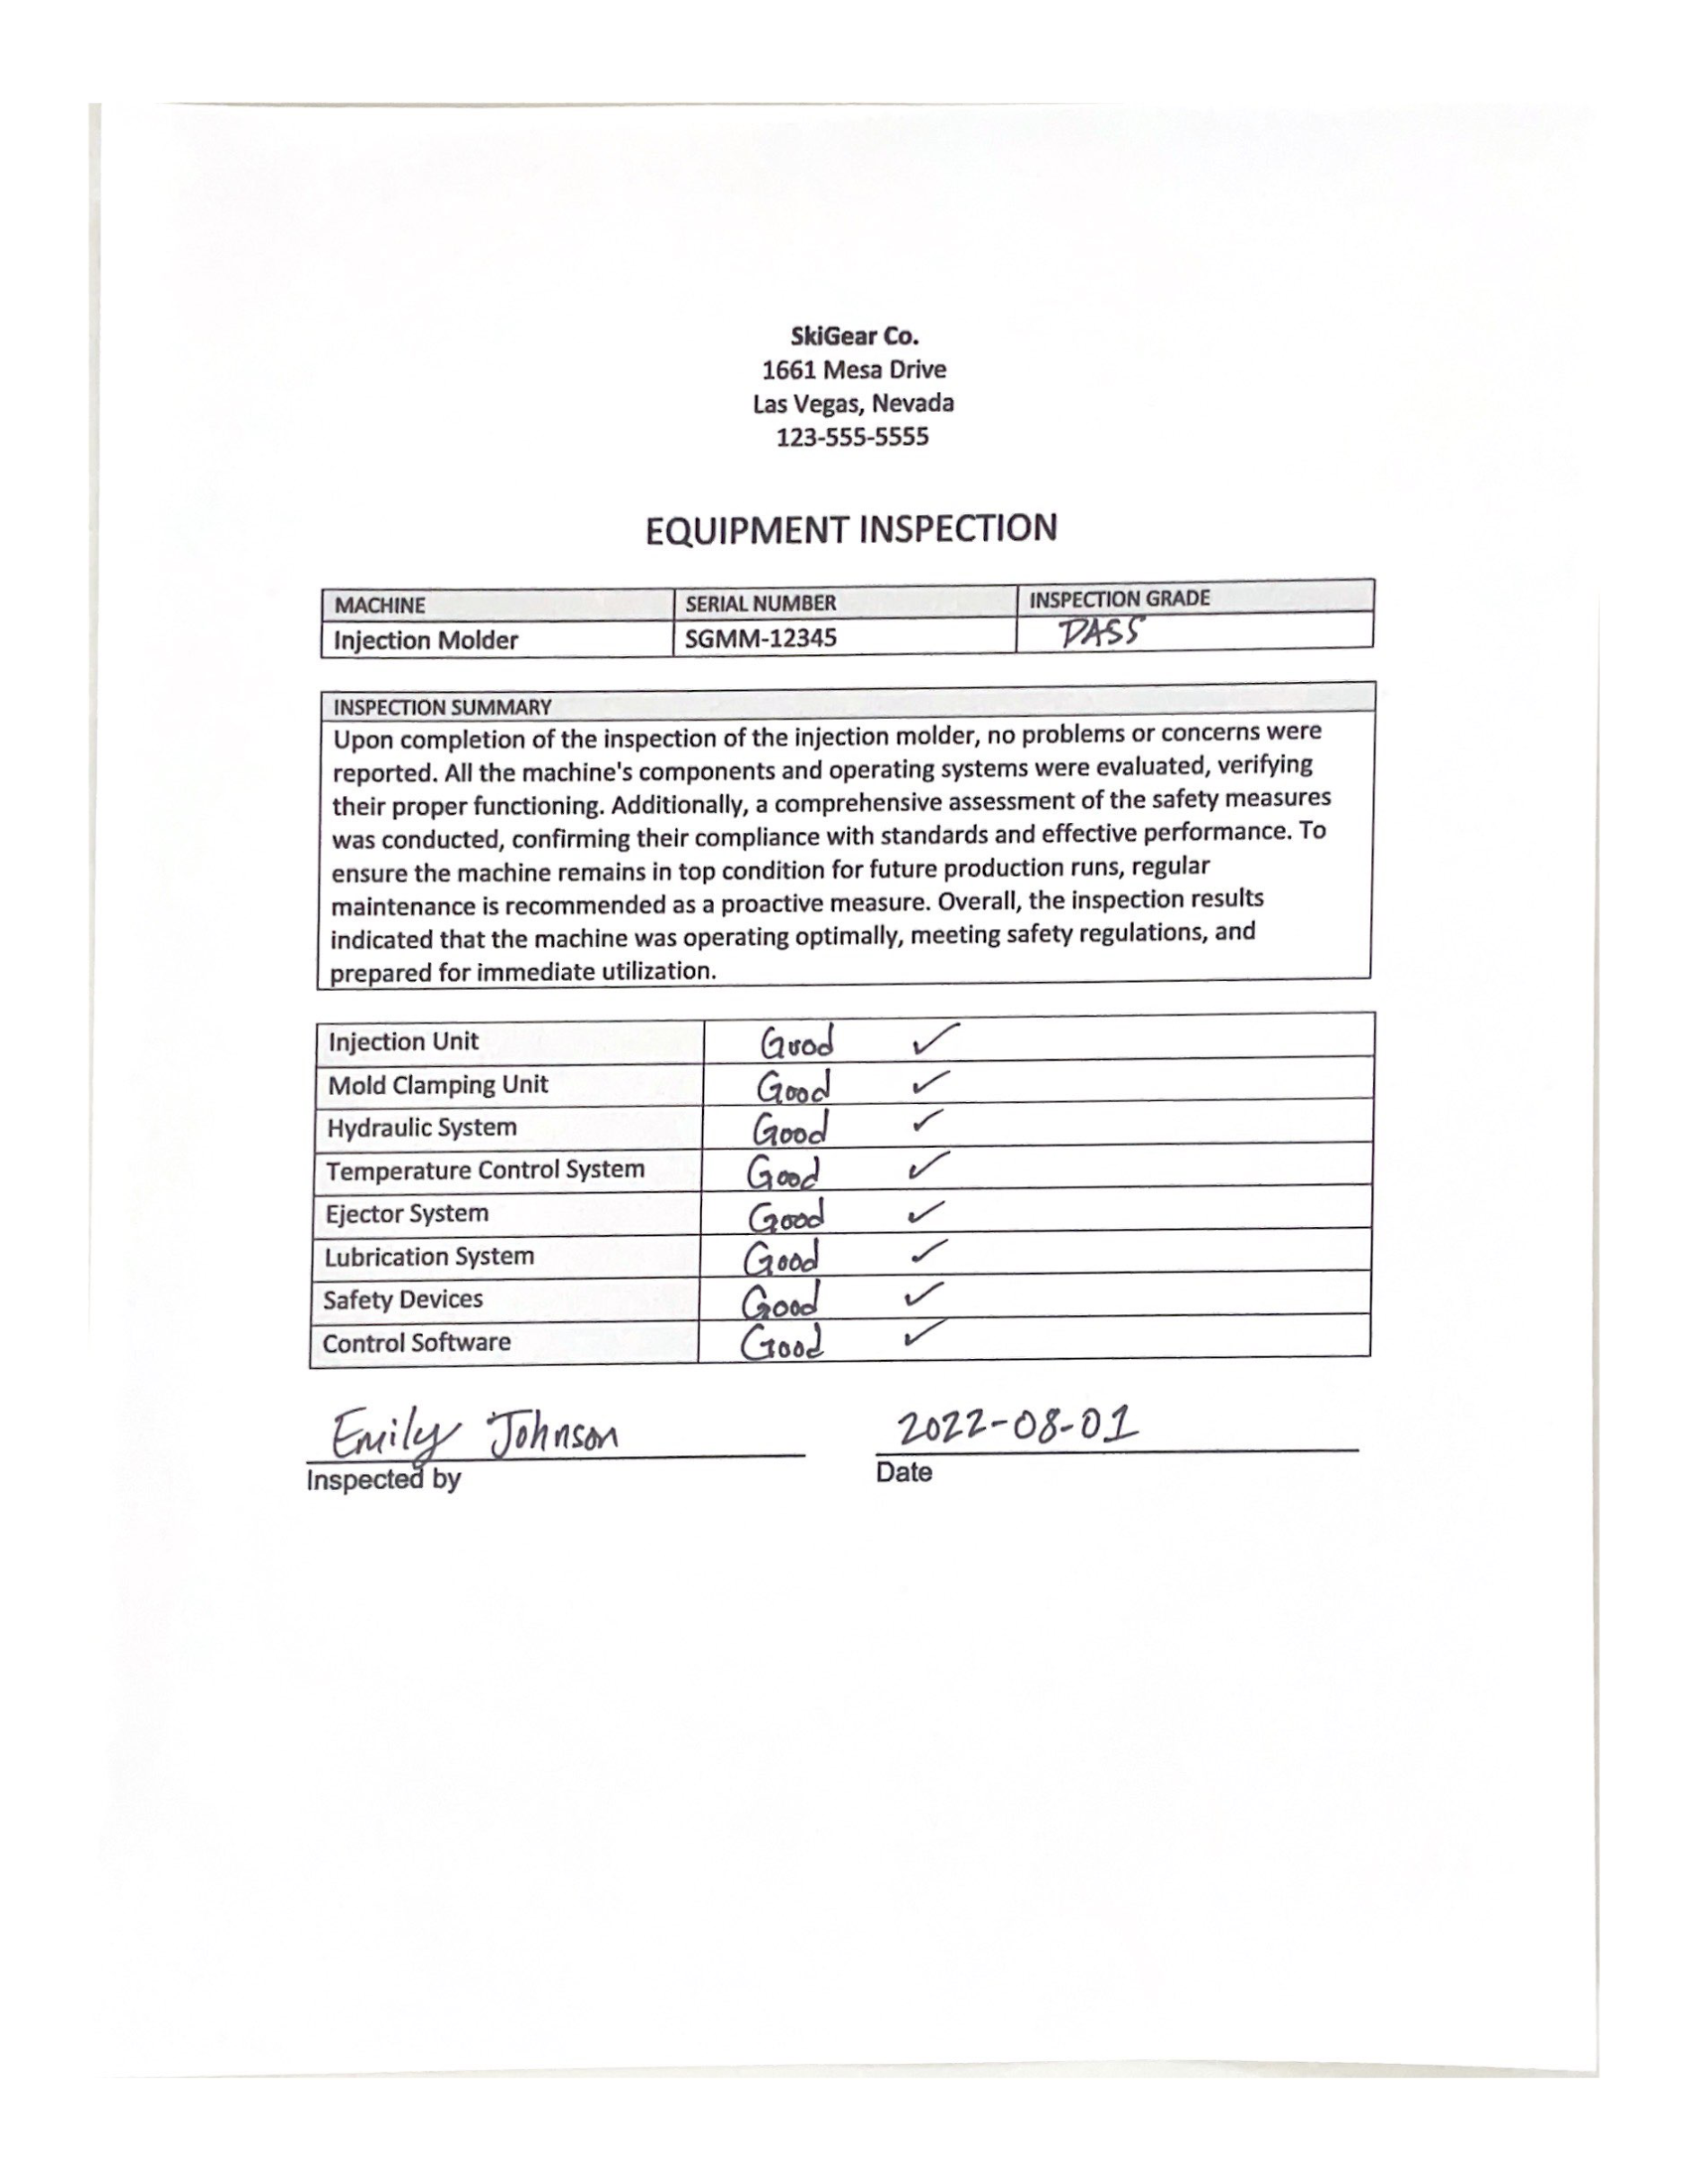 SkiGear Co.
1661 Mesa Drive
Las Vegas, Nevada
123-555-5555
EQUIPMENT INSPECTION
MACHINE SERIAL NUMBER INSPECTION GRADE
Injection Molder SGMM-12345 PASS
INSPECTION SUMMARY
Upon completion of the inspection of the injection molder, no problems or concerns were
reported. All the machine's components and operating systems were evaluated, verifying
their proper functioning. Additionally, a comprehensive assessment of the safety measures
was conducted, confirming their compliance with standards and effective performance. To
ensure the machine remains in top condition for future production runs, regular
maintenance is recommended as a proactive measure. Overall, the inspection results
indicated that the machine was operating optimally, meeting safety regulations, and
prepared for immediate utilization.
Injection Unit Good ✓
Mold Clamping Unit Good ✓
Hydraulic System Good ✓
Temperature Control System Good ✓
Ejector System Good ✓
Lubrication System Good ✓
Safety Devices Good ✓
Control Software Good ✓
Emily Johnson 2022-08-01
Inspected by Date